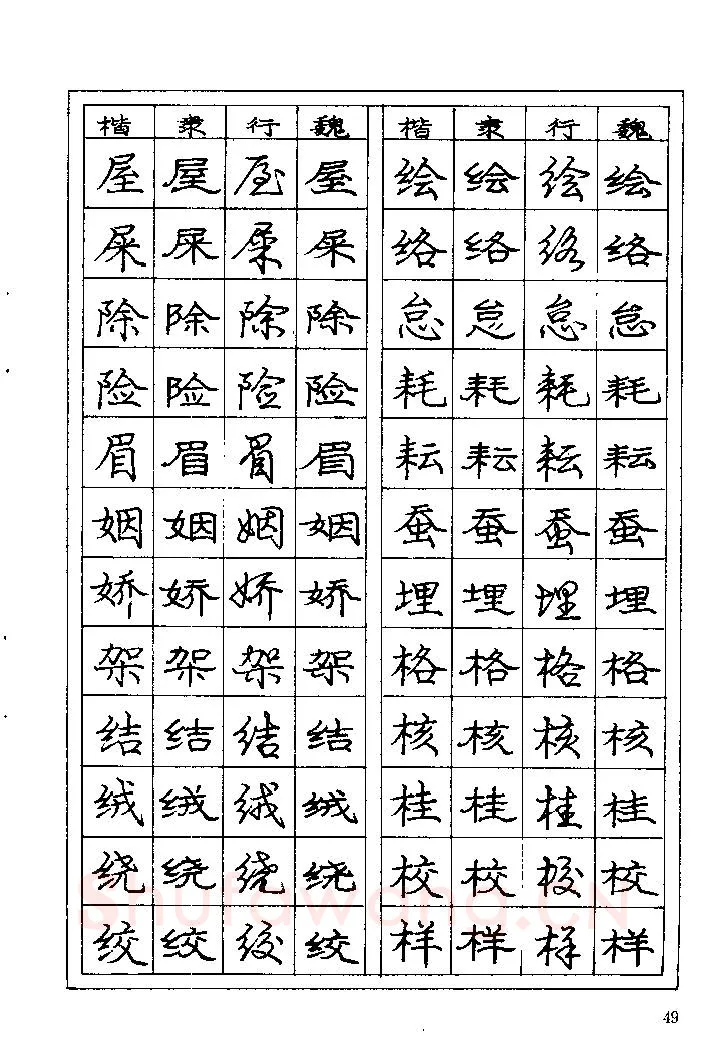 楷 隶 行 魏 楷 隶 行 魏
屋 屋 屋 屋 绘 绘 绘 绘
屎 屎 屎 屎 络 络 络 络
除 除 除 除 怠 怠 怠 怠
险 险 险 险 耗 耗 耗 耗
眉 眉 眉 眉 耘 耘 耘 耘
姻 姻 姻 姻 蚕 蚕 蚕 蚕
娇 娇 娇 娇 埋 埋 埋 埋
架 架 架 架 格 格 格 格
结 结 结 结 核 核 核 核
绒 绒 绒 绒 桂 桂 桂 桂
绕 绕 绕 绕 校 校 校 校
Shufawang.CN
绞 绞 绞 绞 样 样 样 样
49